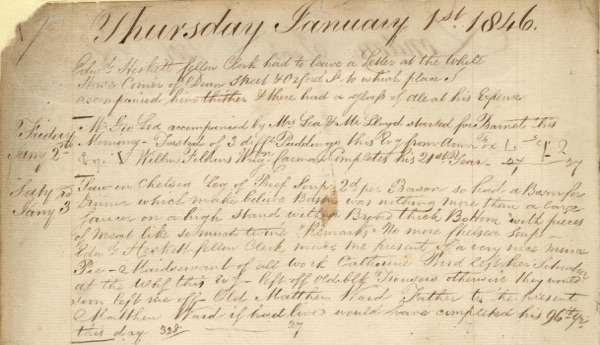 Thursday January 1st. 1846.
Edwd. Heskett fellow Clerk had to leave a Letter at the White
Horse Corner of Dean Street & Oxford St. to which place I
accompanied him thither & there had a glass of ale at his Expense
Friday Mr Geo Lea accompanied by Mrs Lea & Mr Lloyd started for Barnet this
Jany 2nd Morning - Tasted of 3 difft. Puddings this Evg from
Completes his 21st Year
27 27
Saty Saw in Chelsea Leg of Beef Soup 2d per Bason so had a Bason for
Jany 3 Dinner which make believe Bason was nothing more than a large
saucer on a high stand with a Broad thick Bottom with pieces
of meat like so much twine "Remarks" No more Chelsea Soup
Edwd. Heskett fellow Clerk made me present of a very nice mince
Pie - Maidservant of all work Catherine Bird left
at the this Evg - left off old Trousers otherwise they would
soon left me off - Old Matthew Ward Father to the present
Matthew Ward if had lived would have completed his 96th yr
this day
27